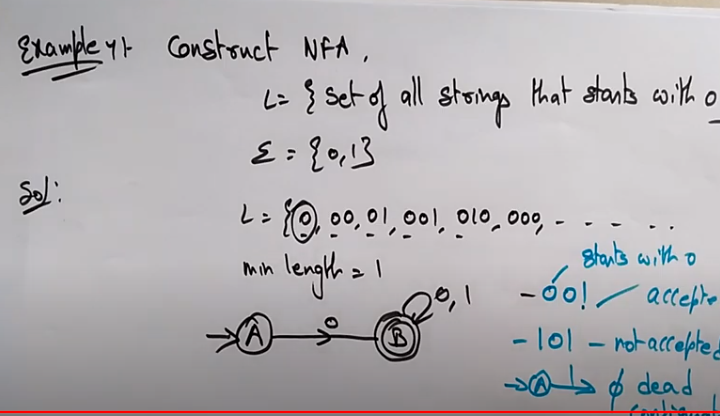 Example 1
Construct NFA,
L = { Set of all strings that starts with 0
Σ = {0,1}
Sol:
L = {0, 00, 01, 001, 010, 000, - - - - - -
min length = 1
A 0 B 0,1
starts with 0
- 001 accepte
- 101 - not accepted
A 1 φ dead